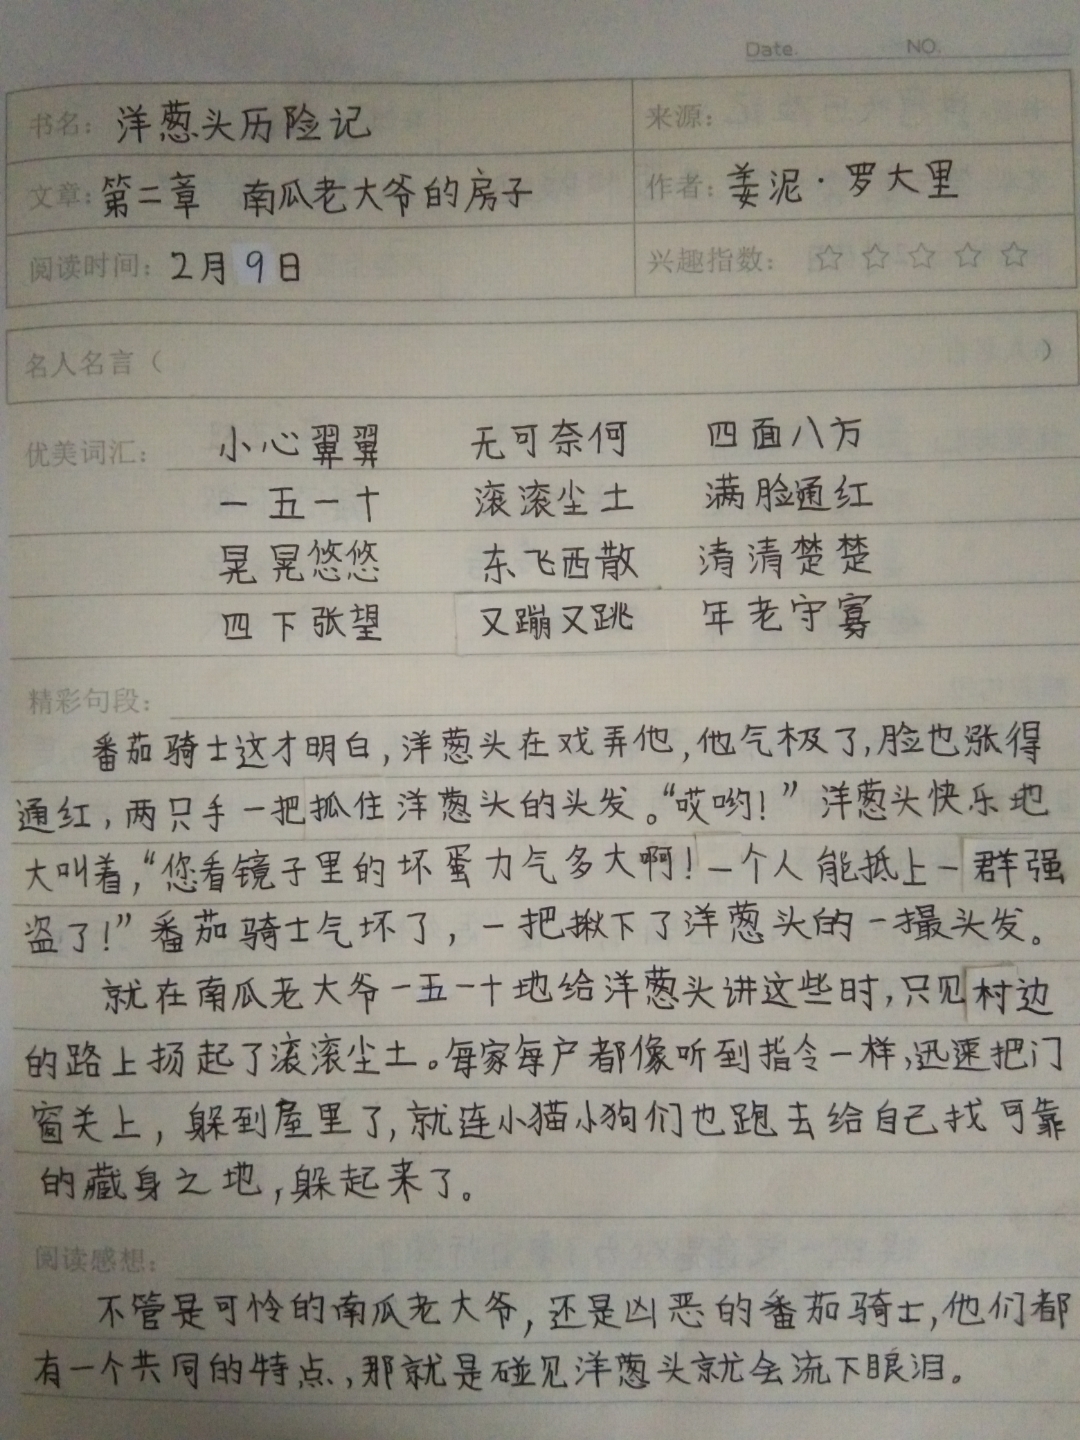 Date. NO.
书名：洋葱头历险记 来源：
文章：第二章 南瓜老大爷的房子 作者：姜泥·罗大里
阅读时间：2月9日 兴趣指数：☆☆☆☆☆
名人名言（ ）
优美词汇：小心翼翼 无可奈何 四面八方
一五一十 滚滚尘土 满脸通红
晃晃悠悠 东飞西散 清清楚楚
四下张望 又蹦又跳 年老守寡
精彩句段：
番茄骑士这才明白，洋葱头在戏弄他，他气极了，脸也涨得
通红，两只手一把抓住洋葱头的头发。“哎哟！”洋葱头快乐地
大叫着，“您看镜子里的坏蛋力气多大啊！一个人能抵上一群强
盗了！”番茄骑士气坏了，一把揪下了洋葱头的一撮头发。
就在南瓜老大爷一五一十地给洋葱头讲这些时，只见村边
的路上扬起了滚滚尘土。每家每户都像听到指令一样，迅速把门
窗关上，躲到屋里了，就连小猫小狗们也跑去给自己找可靠
的藏身之地，躲起来了。
阅读感想：
不管是可怜的南瓜老大爷，还是凶恶的番茄骑士，他们都
有一个共同的特点，那就是碰见洋葱头就会流下眼泪。